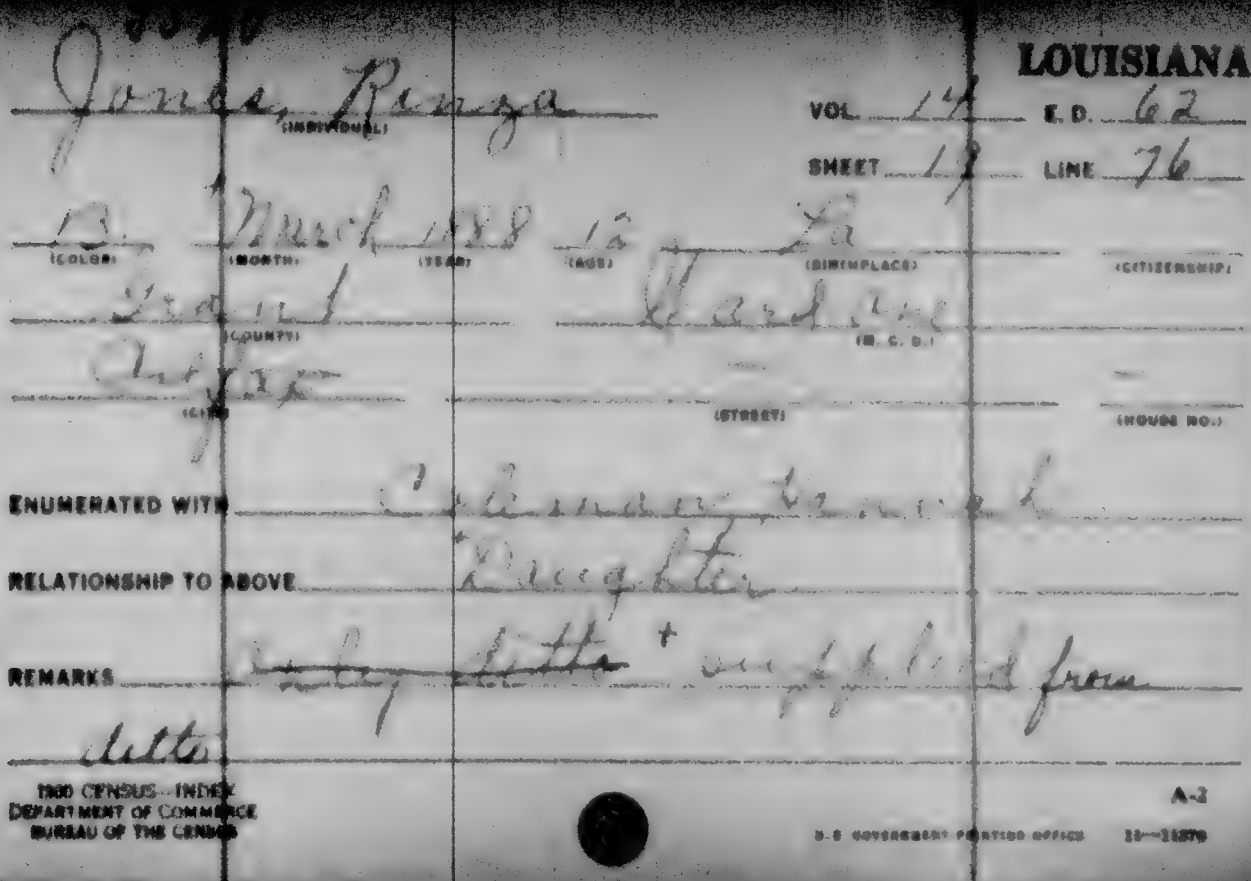 LOUISIANA
Jones, Rinza
(INDIVIDUAL)
VOL. 14 E. D. 62
SHEET 19 LINE 76
B. March 1888 12 La
(COLOR) (MONTH) (YEAR) (AGE) (BIRTHPLACE) (CITIZENSHIP)
Grant Ward one
(COUNTY) (M. C. D.)
- -
(CITY) (STREET) (HOUSE NO.)
ENUMERATED WITH Coleman
RELATIONSHIP TO ABOVE Daughter
REMARKS ditto + supplied from
ditto
1900 CENSUS—INDEX
DEPARTMENT OF COMMERCE
BUREAU OF THE CENSUS
A-2
U.S. GOVERNMENT PRINTING OFFICE